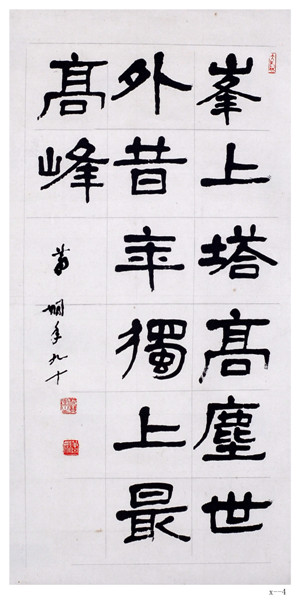 峯上塔高塵世
外昔年獨上最
高峰
蕭嫻年九十
x--4